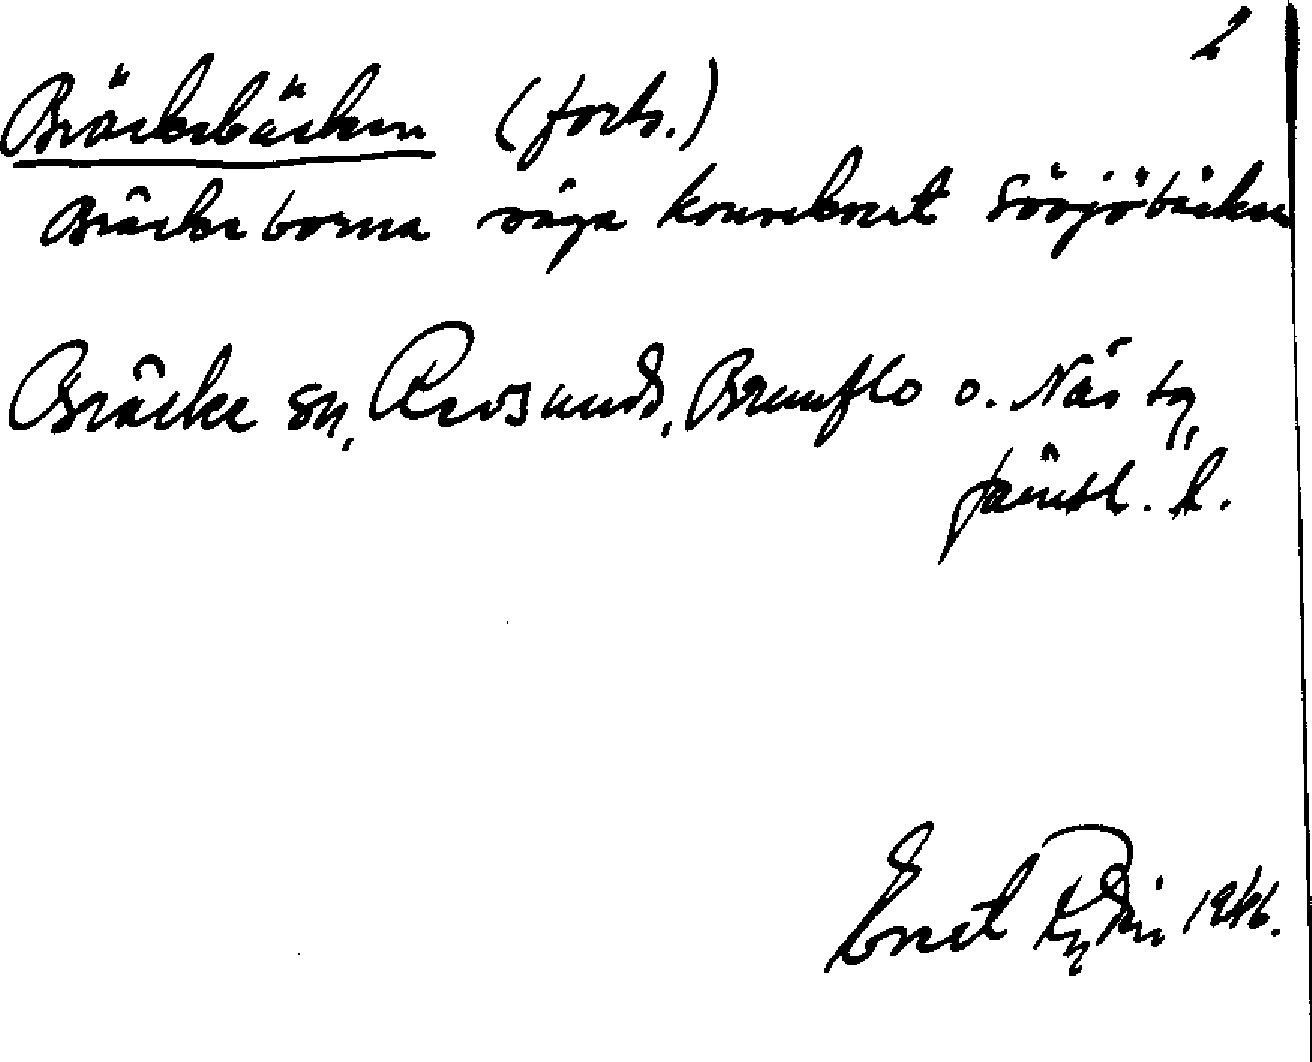 2
Bräcksbäcken (forts.)
Bräckeborna säga konsekvent Sösjöbäcken
Bräcke sn, Revsunds, Brunflo o. Näs tg,
Jämtl. l.
Ernst 1946.